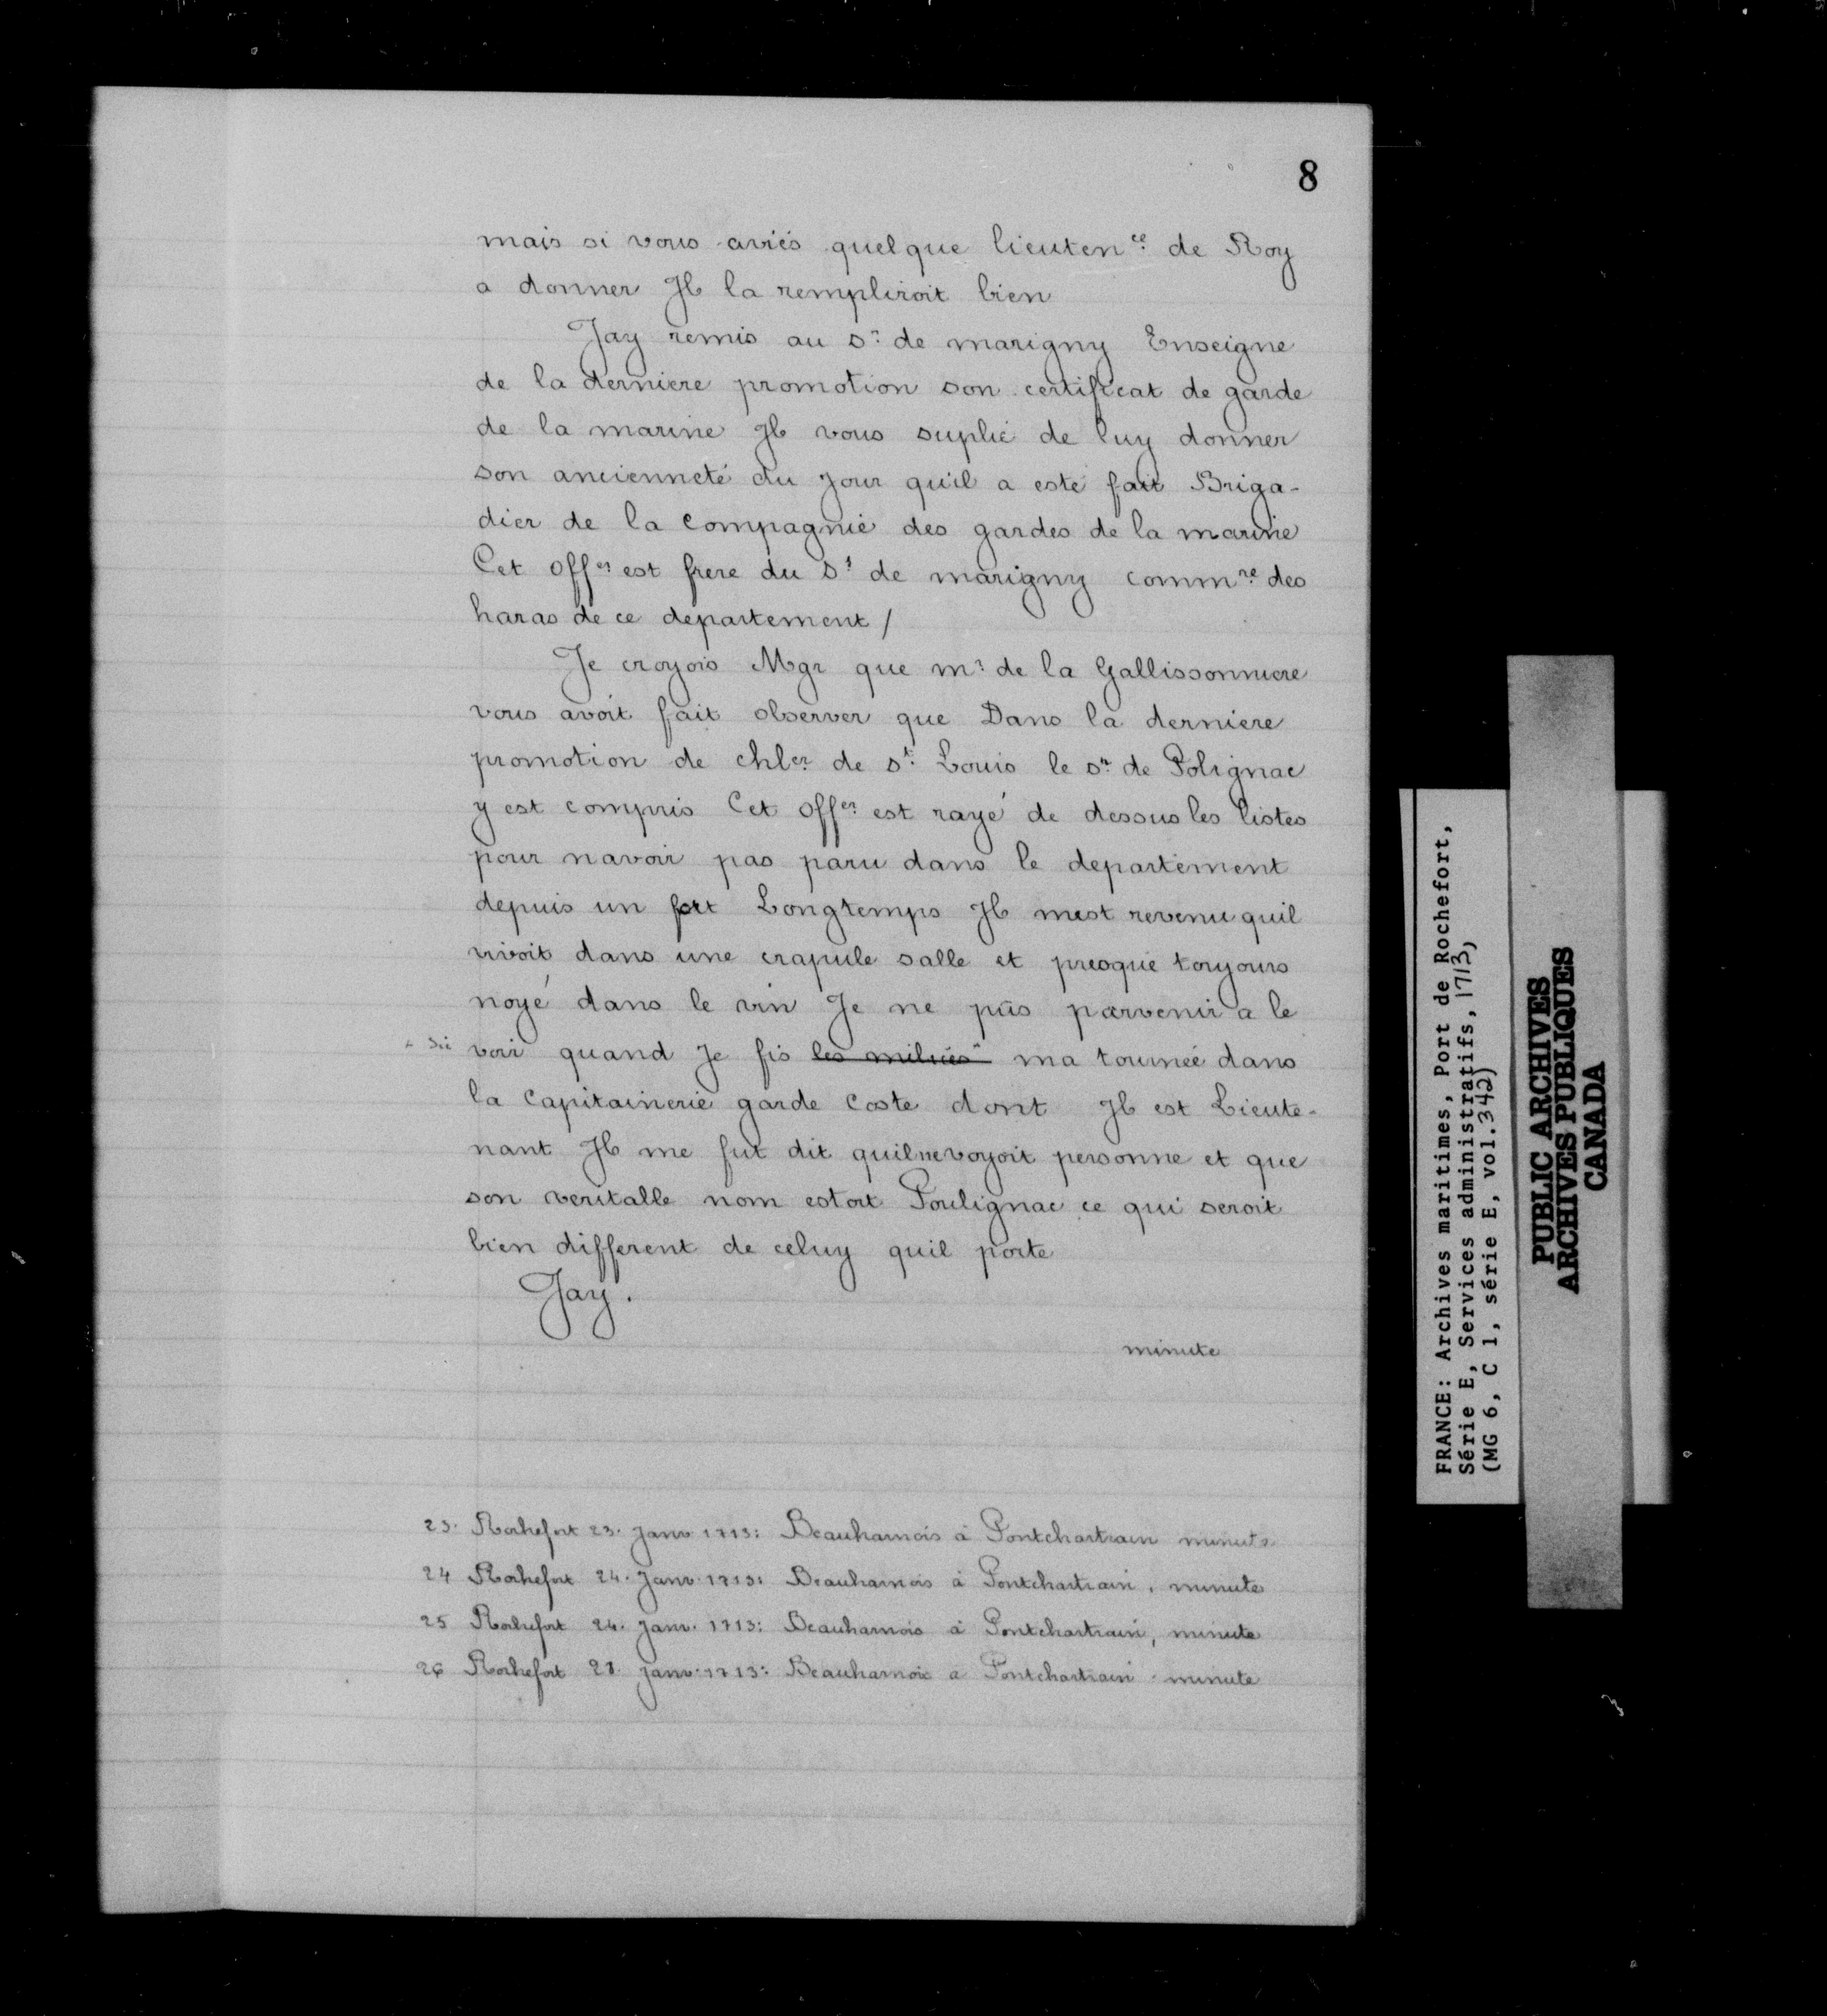 8
mais si vous aviés quelque lieuten.ce de Roy
a donner Jl la rempliroit bien
Jay remis au s.r de marigny Enseigne
de la derniere promotion son certificat de garde
de la marine Jl vous suplié de luy donner
son ancienneté du jour quil a esté fait Briga-
dier de la compagnie des gardes de la marine
Cet off.er est frere du S.r de marigny comm.re des
haras de ce departement /
Je croyois Mgr que m.r de la Gallissonniere
vous avoit fait observer que Dans la derniere
promotion de chl.er de s.t Louis le s.r de Polignac
y est compris Cet off.er est rayé de dessus les listes
pour navoir pas paru dans le departement
depuis un fort Longtemps Jl mest revenu quil
vivoit dans une crapule salle et presque toujours
noyé dans le vin Je ne pûs parvenir a le
voir quand Je fis les milices ma tournée dans
la capitainerie garde coste dont Jl est Lieute-
nant Jl me fut dit quil ne voyoit personne et que
son veritalle nom estoit Poulignac ce qui seroit
bien different de celuy quil porte
Jay.
minute
23. Rochefort 23. Janv 1713: Beauharnois à Pontchartrain minute
24 Rochefort 24. Janv. 1713: Beauharnois à Pontchartrain, minute
25 Rochefort 24. Janv. 1713: Beauharnois à Pontchartrain, minute
26 Rochefort 28 janv. 1713: Beauharnois a Pontchartrain minute
FRANCE: Archives maritimes, Port de Rochefort,
Série E, Services administratifs, 1713)
(MG 6, C 1, série E, vol.342)
PUBLIC ARCHIVES
ARCHIVES PUBLIQUES
CANADA